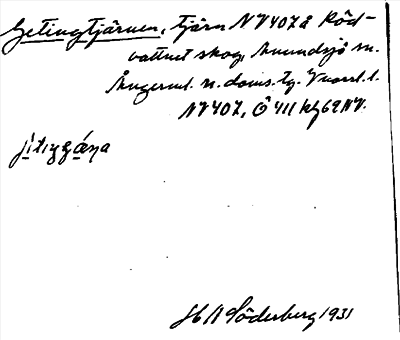 Getingtjärnen, tjärn NV407 å Röd-
vattnet skog, Anundsjö sn.
Ångerml. n. doms. tg. V.norrl. l.
NV407, Ö411 kfg 69NV.
H A Söderberg 1931